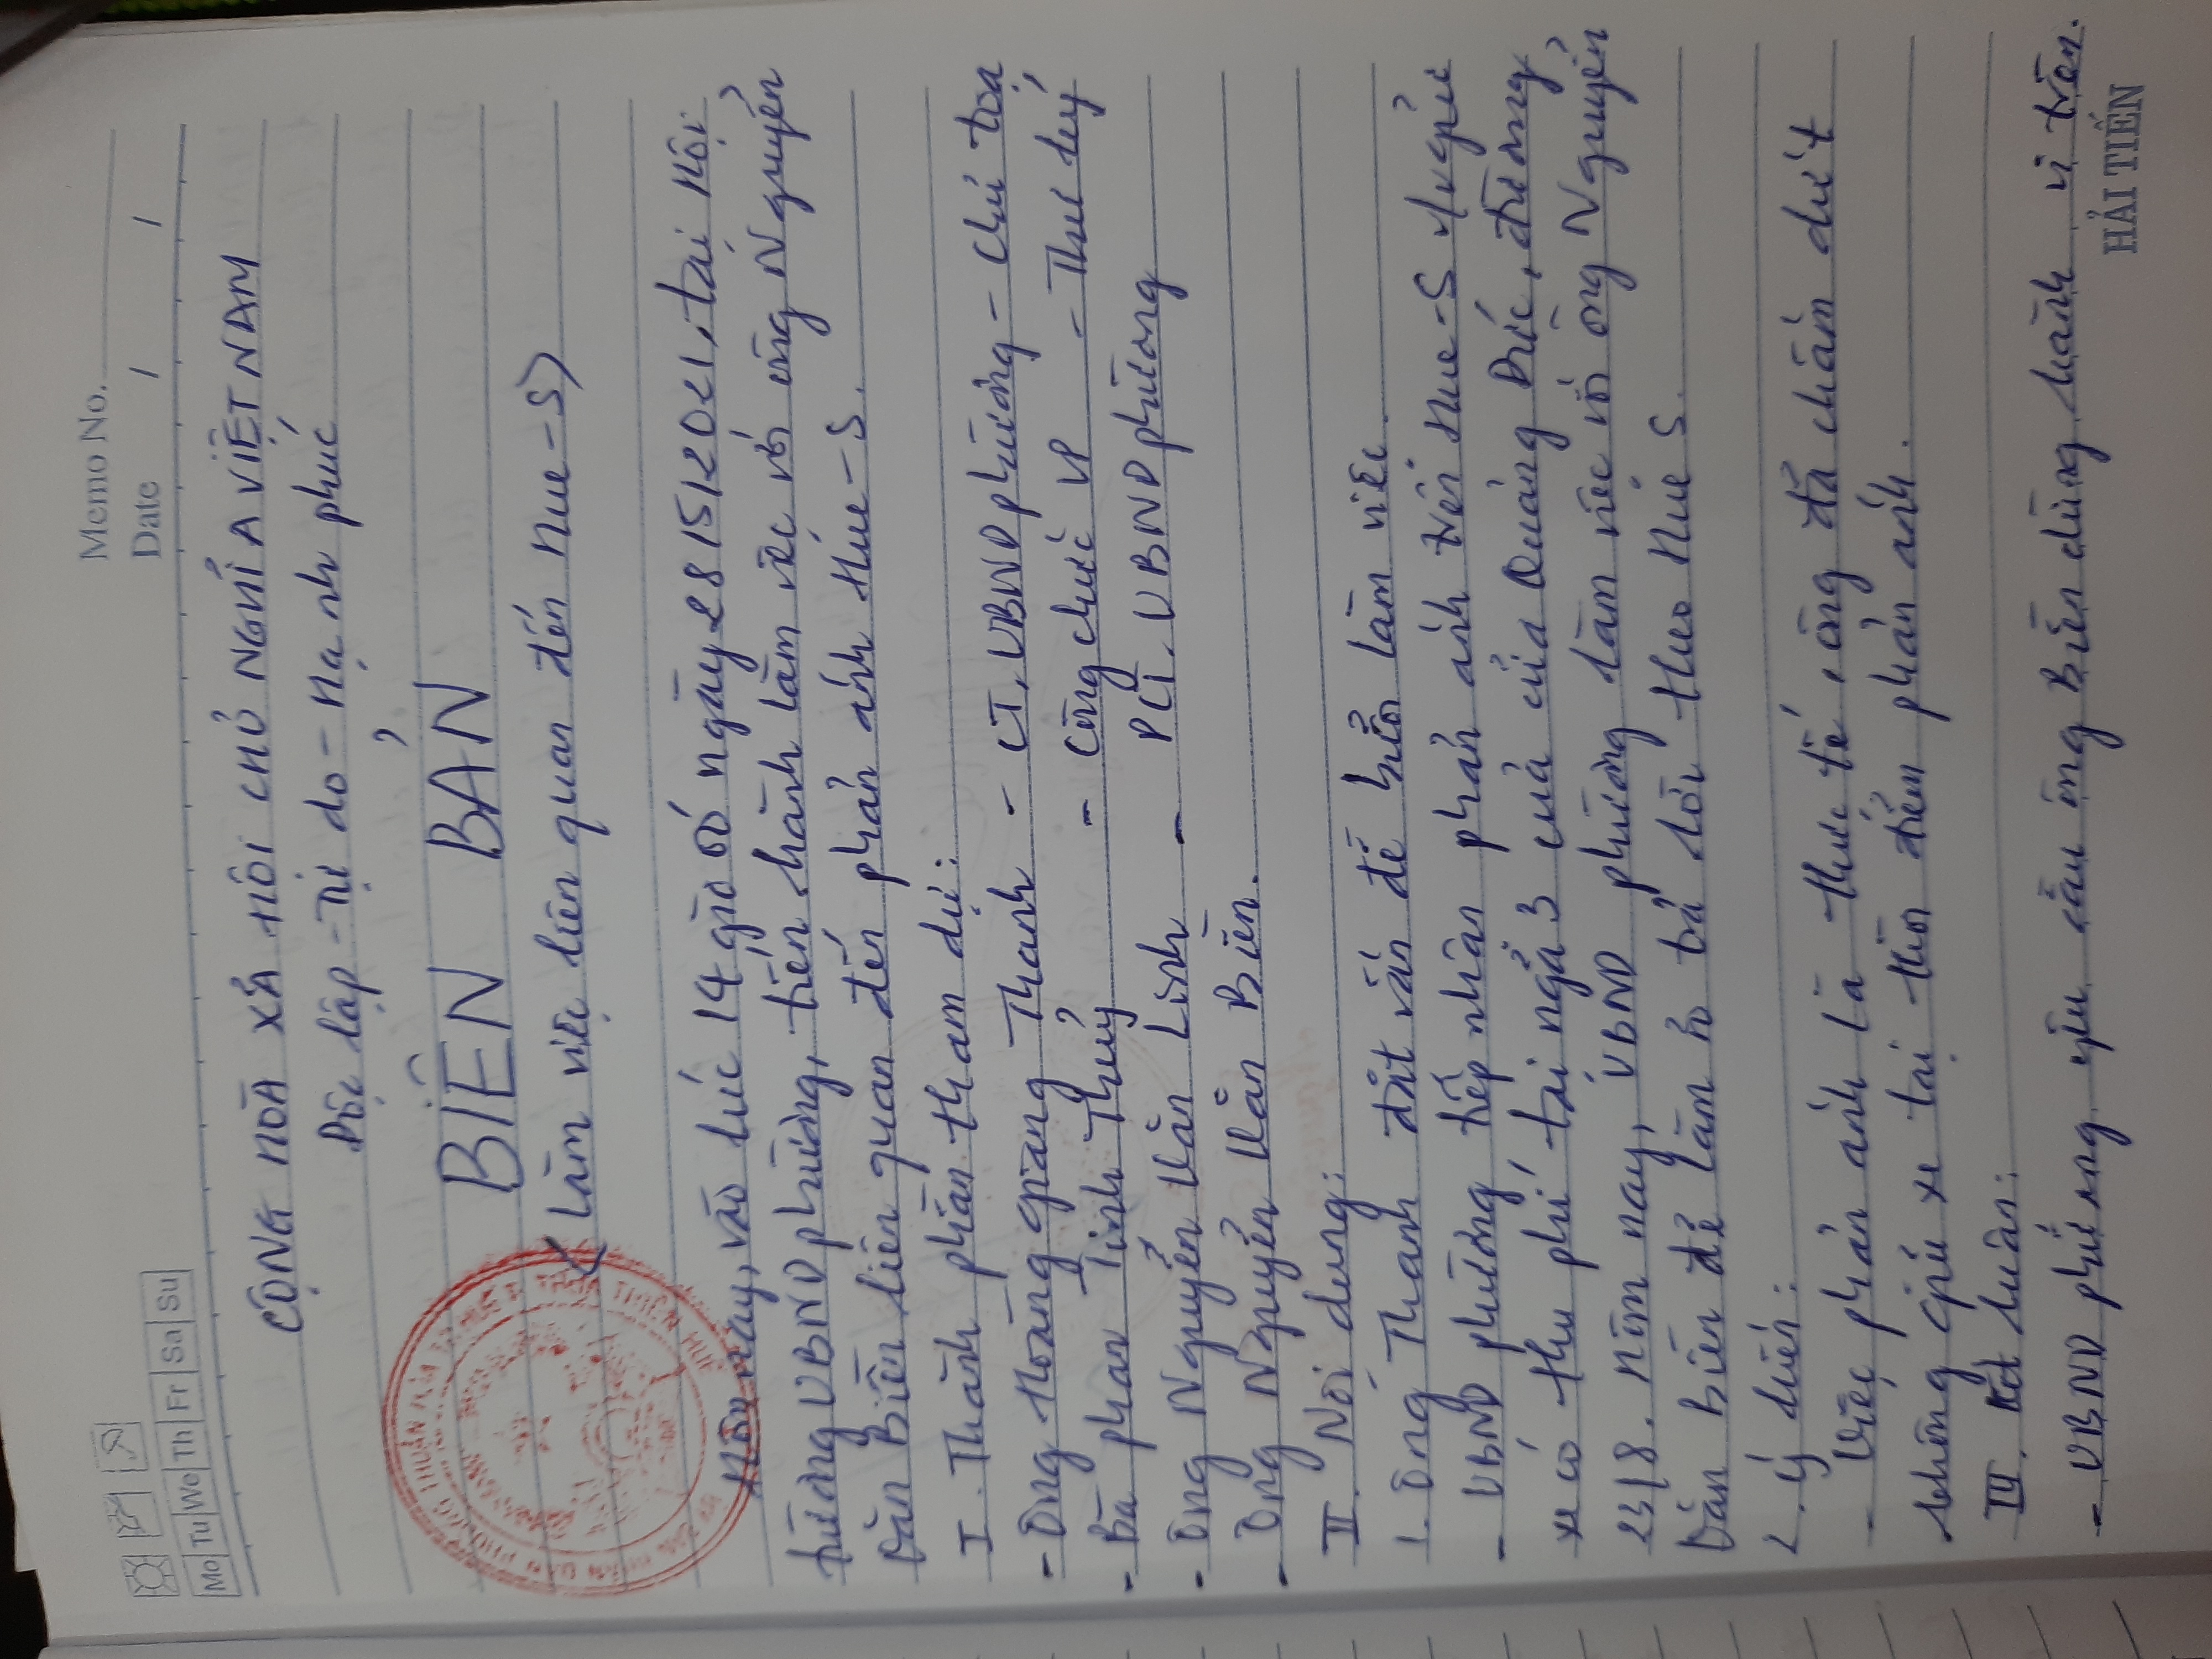 Memo No.
Date / /
Mo Tu We Th Fr Sa Su
CỘNG HÒA XÃ HỘI CHỦ NGHĨA VIỆT NAM
Độc lập - Tự do - Hạnh phúc
BIÊN BẢN
(Làm việc liên quan đến Hue-S)
Hôm nay, vào lúc 14 giờ 05 ngày 28/5/2021, tại Hội
trường UBND phường, tiến hành làm việc với ông Nguyễn
Văn Biên liên quan đến phản ánh Hue-S.
I. Thành phần tham dự:
- Ông Hoàng Giang Thanh - CT. UBND phường - Chủ tọa
- Bà Phan Tịnh Thủy - Công chức VP - Thư ký
- Ông Nguyễn Văn Linh - PCT. UBND phường
- Ông Nguyễn Văn Biên.
II. Nội dung:
1. Ông Thanh đặt vấn đề buổi làm việc.
- UBND phường tiếp nhận phản ánh trên Hue-S v/v giữ
xe có thu phí tại ngã 3 cửa của Quảng Đức, đường
23/8. Hôm nay, UBND phường làm việc với ông Nguyễn
Văn Biên để làm rõ trả lời theo Hue S.
2. Ý kiến:
- Việc phản ánh là thực tế, ông đã chấm dứt
không giữ xe tại thời điểm phản ánh.
III. Kết luận:
- UBND phường yêu cầu ông Biên dừng hành vi trên.
HẢI TIẾN